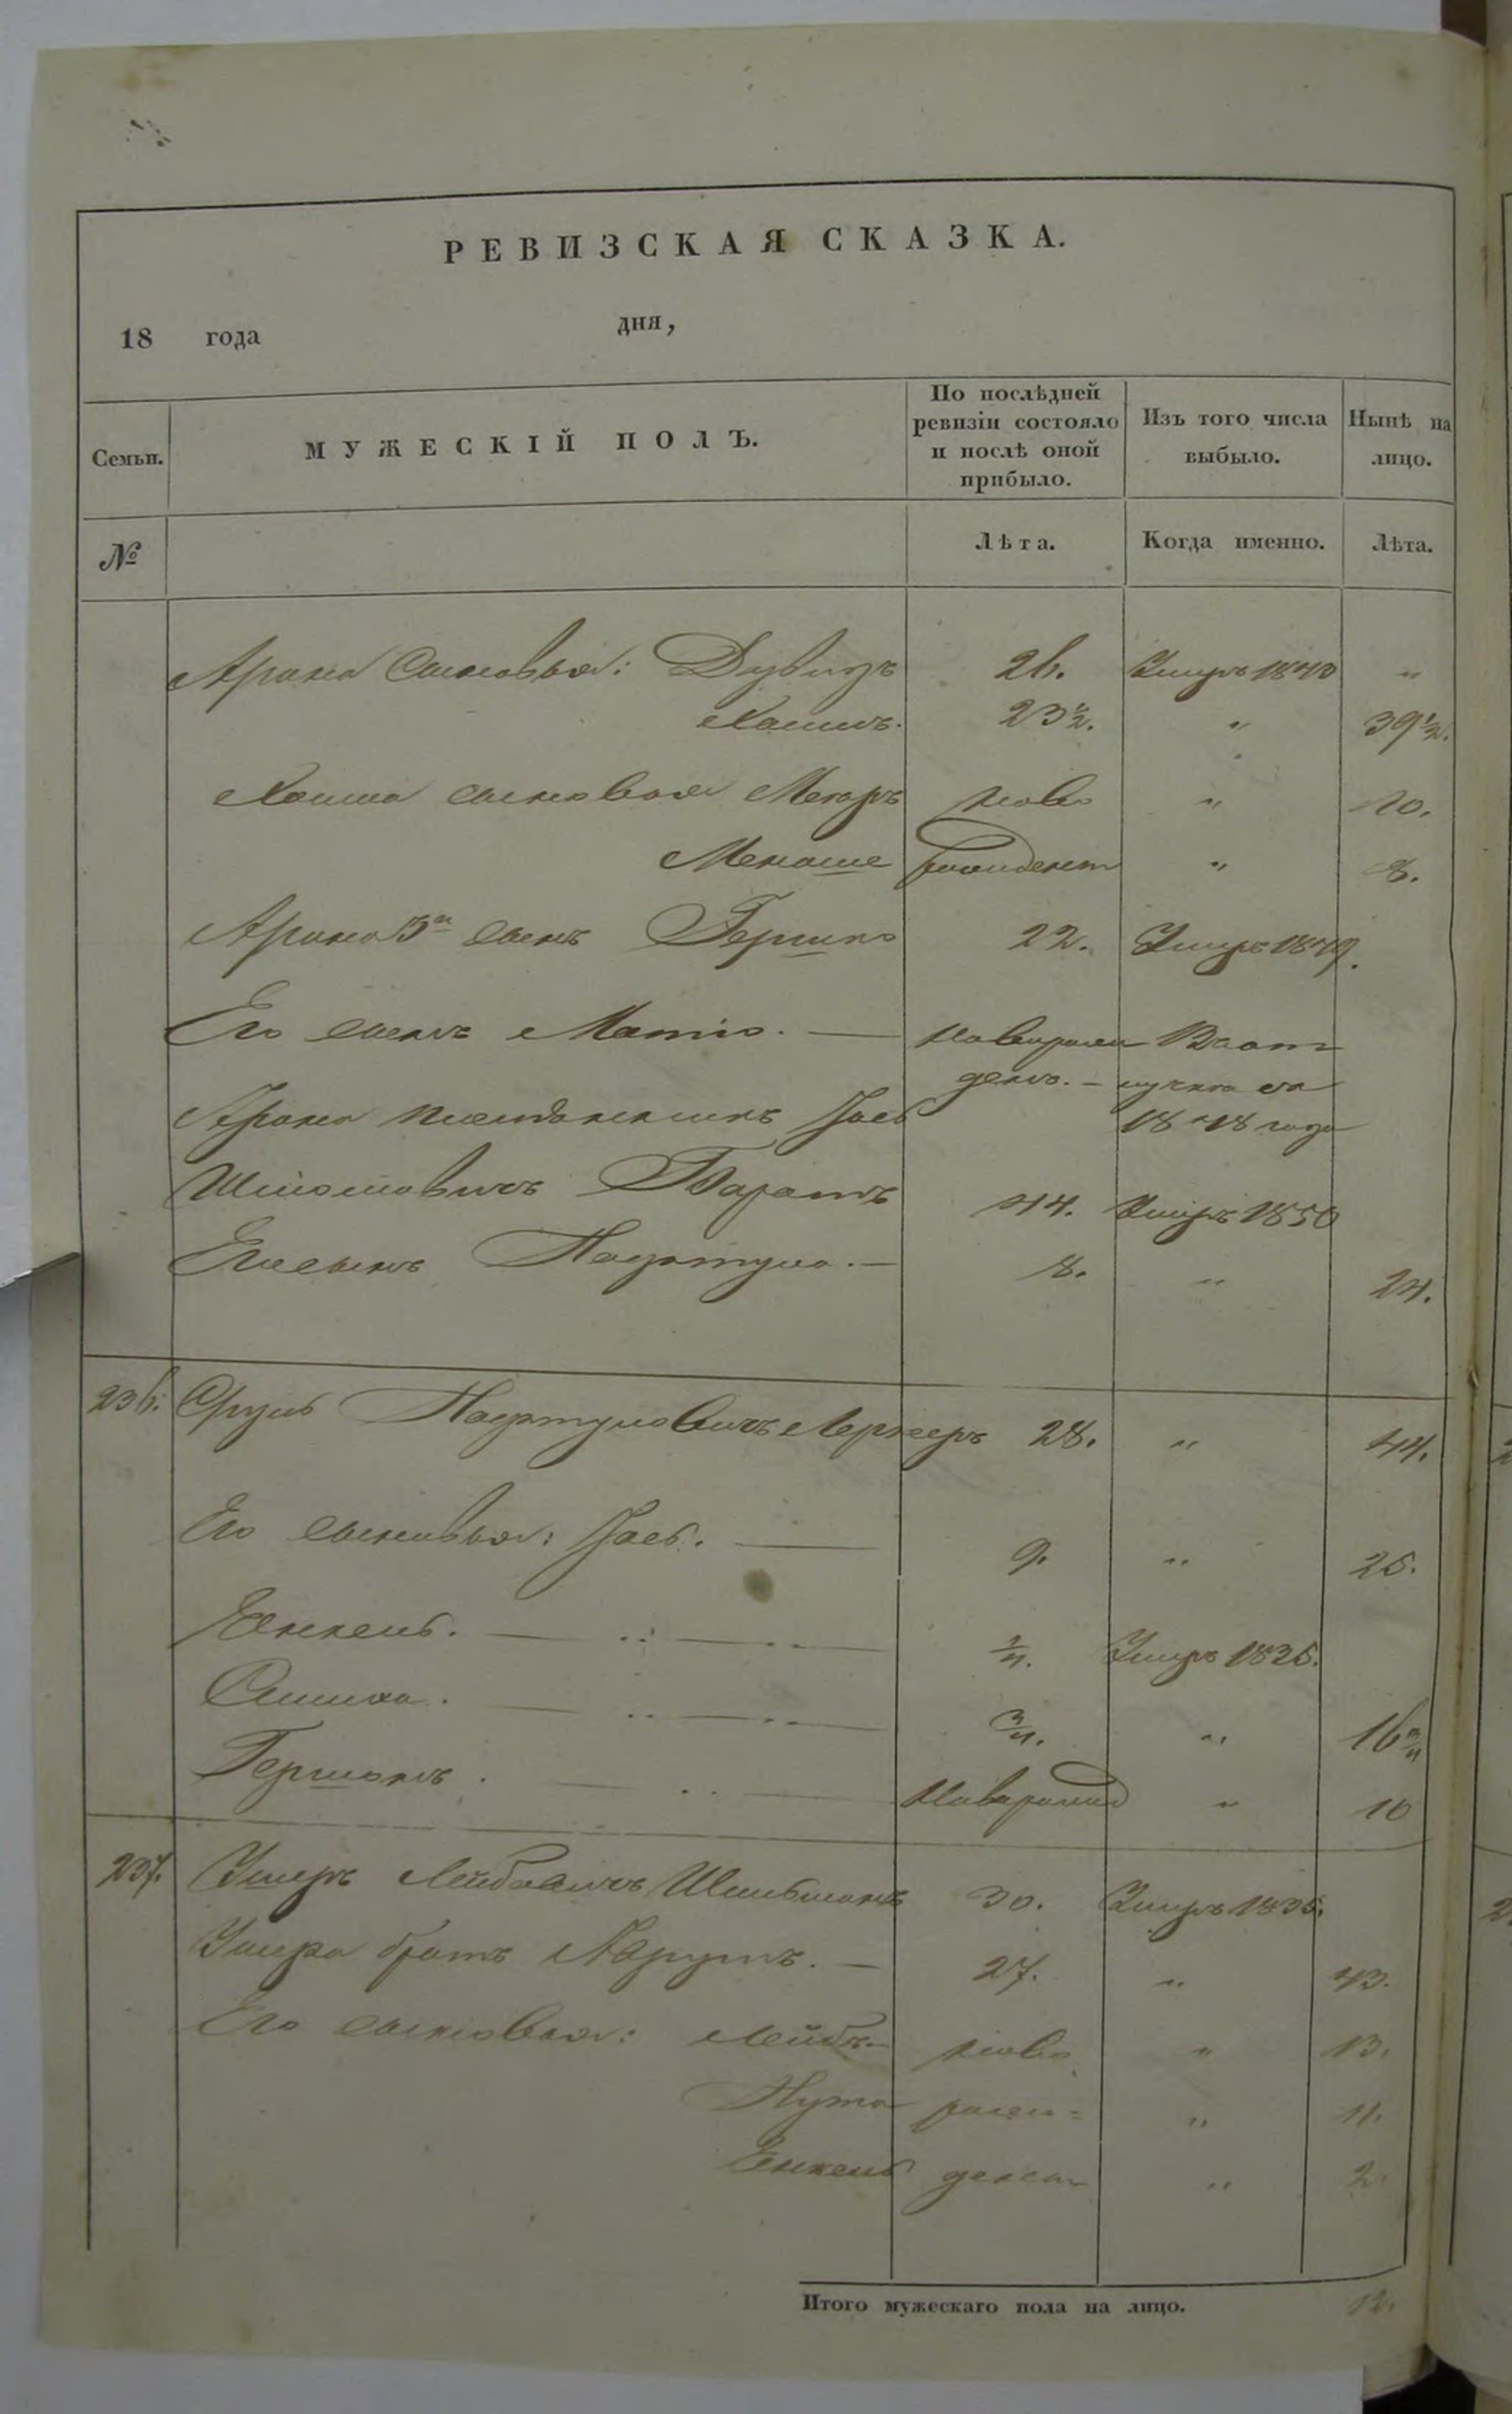 РЕВИЗСКАЯ СКАЗКА.
18 года дня,
Семьи. МУЖЕСКІЙ ПОЛЪ. По послѣдней ревизіи состояло и послѣ оной прибыло. Изъ того числа выбыло. Нынѣ на лицо.
№ Лѣта. Когда именно. Лѣта.
Арона Сыновья: Дувидъ 26. Умеръ 1840 "
Хаимъ. 23½. " 39½.
Хаима сыновья Мееръ ново " 10.
Менаше рожденъ " 8.
Арона 3й сынъ Гершко 22. Умеръ 1849.
Его сынъ — новорож Въ от
денъ. —
Арона племянникъ Іось 1848 года
44. Умеръ 1850
Его сынъ Нафтула. — 8. " 24.
236. Сруль Нафтуловичъ Лернеръ 28. " 44.
Его сыновья: Іось. — 9. " 25.
Янкель. — " — " — ½. Умеръ 1836.
— " — " — ¾. " 16¾
Гершонъ. — " — Новорожд " 10
237. Ушеръ Лейбовичъ 30. Умеръ 1835.
Ушера братъ — 27. " 43.
Его сыновья: Лейба — ново " 13.
Нута рож= " 11.
Янкель денъ " 2.
Итого мужескаго пола на лицо. 12.